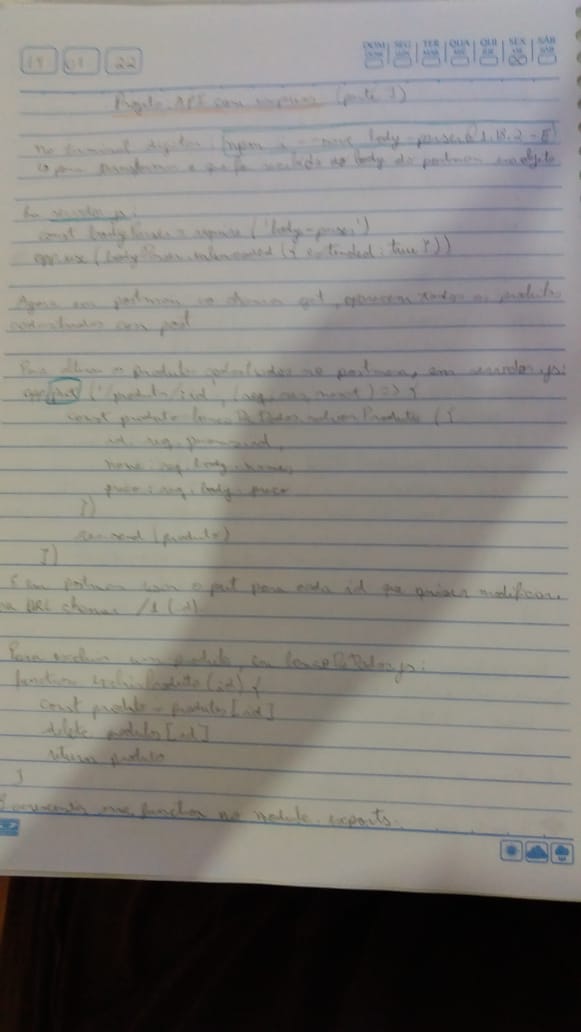 19 01 22
DOM SEG TER QUA QUI SEX SÁB
Projeto API com express (parte 1)
No terminal digitar: npm i --save body-parser@1.18.2 -E
↳ para transformar o que foi no body do postman em objeto
Em servidor.js:
const bodyParser = require('body-parser')
app.use(bodyParser.urlencoded({ extended: true }))
Agora em postman, ao chamar get, aparecem todos os produtos
cadastrados com post
Para alterar os produtos cadastrados no postman, em servidor.js:
app.put('/produtos/:id', (req, res, next) => {
const produto = bancoDeDados.salvarProduto({
id: req.params.id,
nome: req.body.nome,
preco: req.body.preco
})
res.send(produto)
})
E em postman usar o put para cada id que quiser modificar.
na URL chamar /1
Para excluir um produto, em bancoDeDados.js:
function excluirProduto(id) {
const produto = produtos[id]
delete produtos[id]
return produto
}
E acrescenta essa function no module.exports.